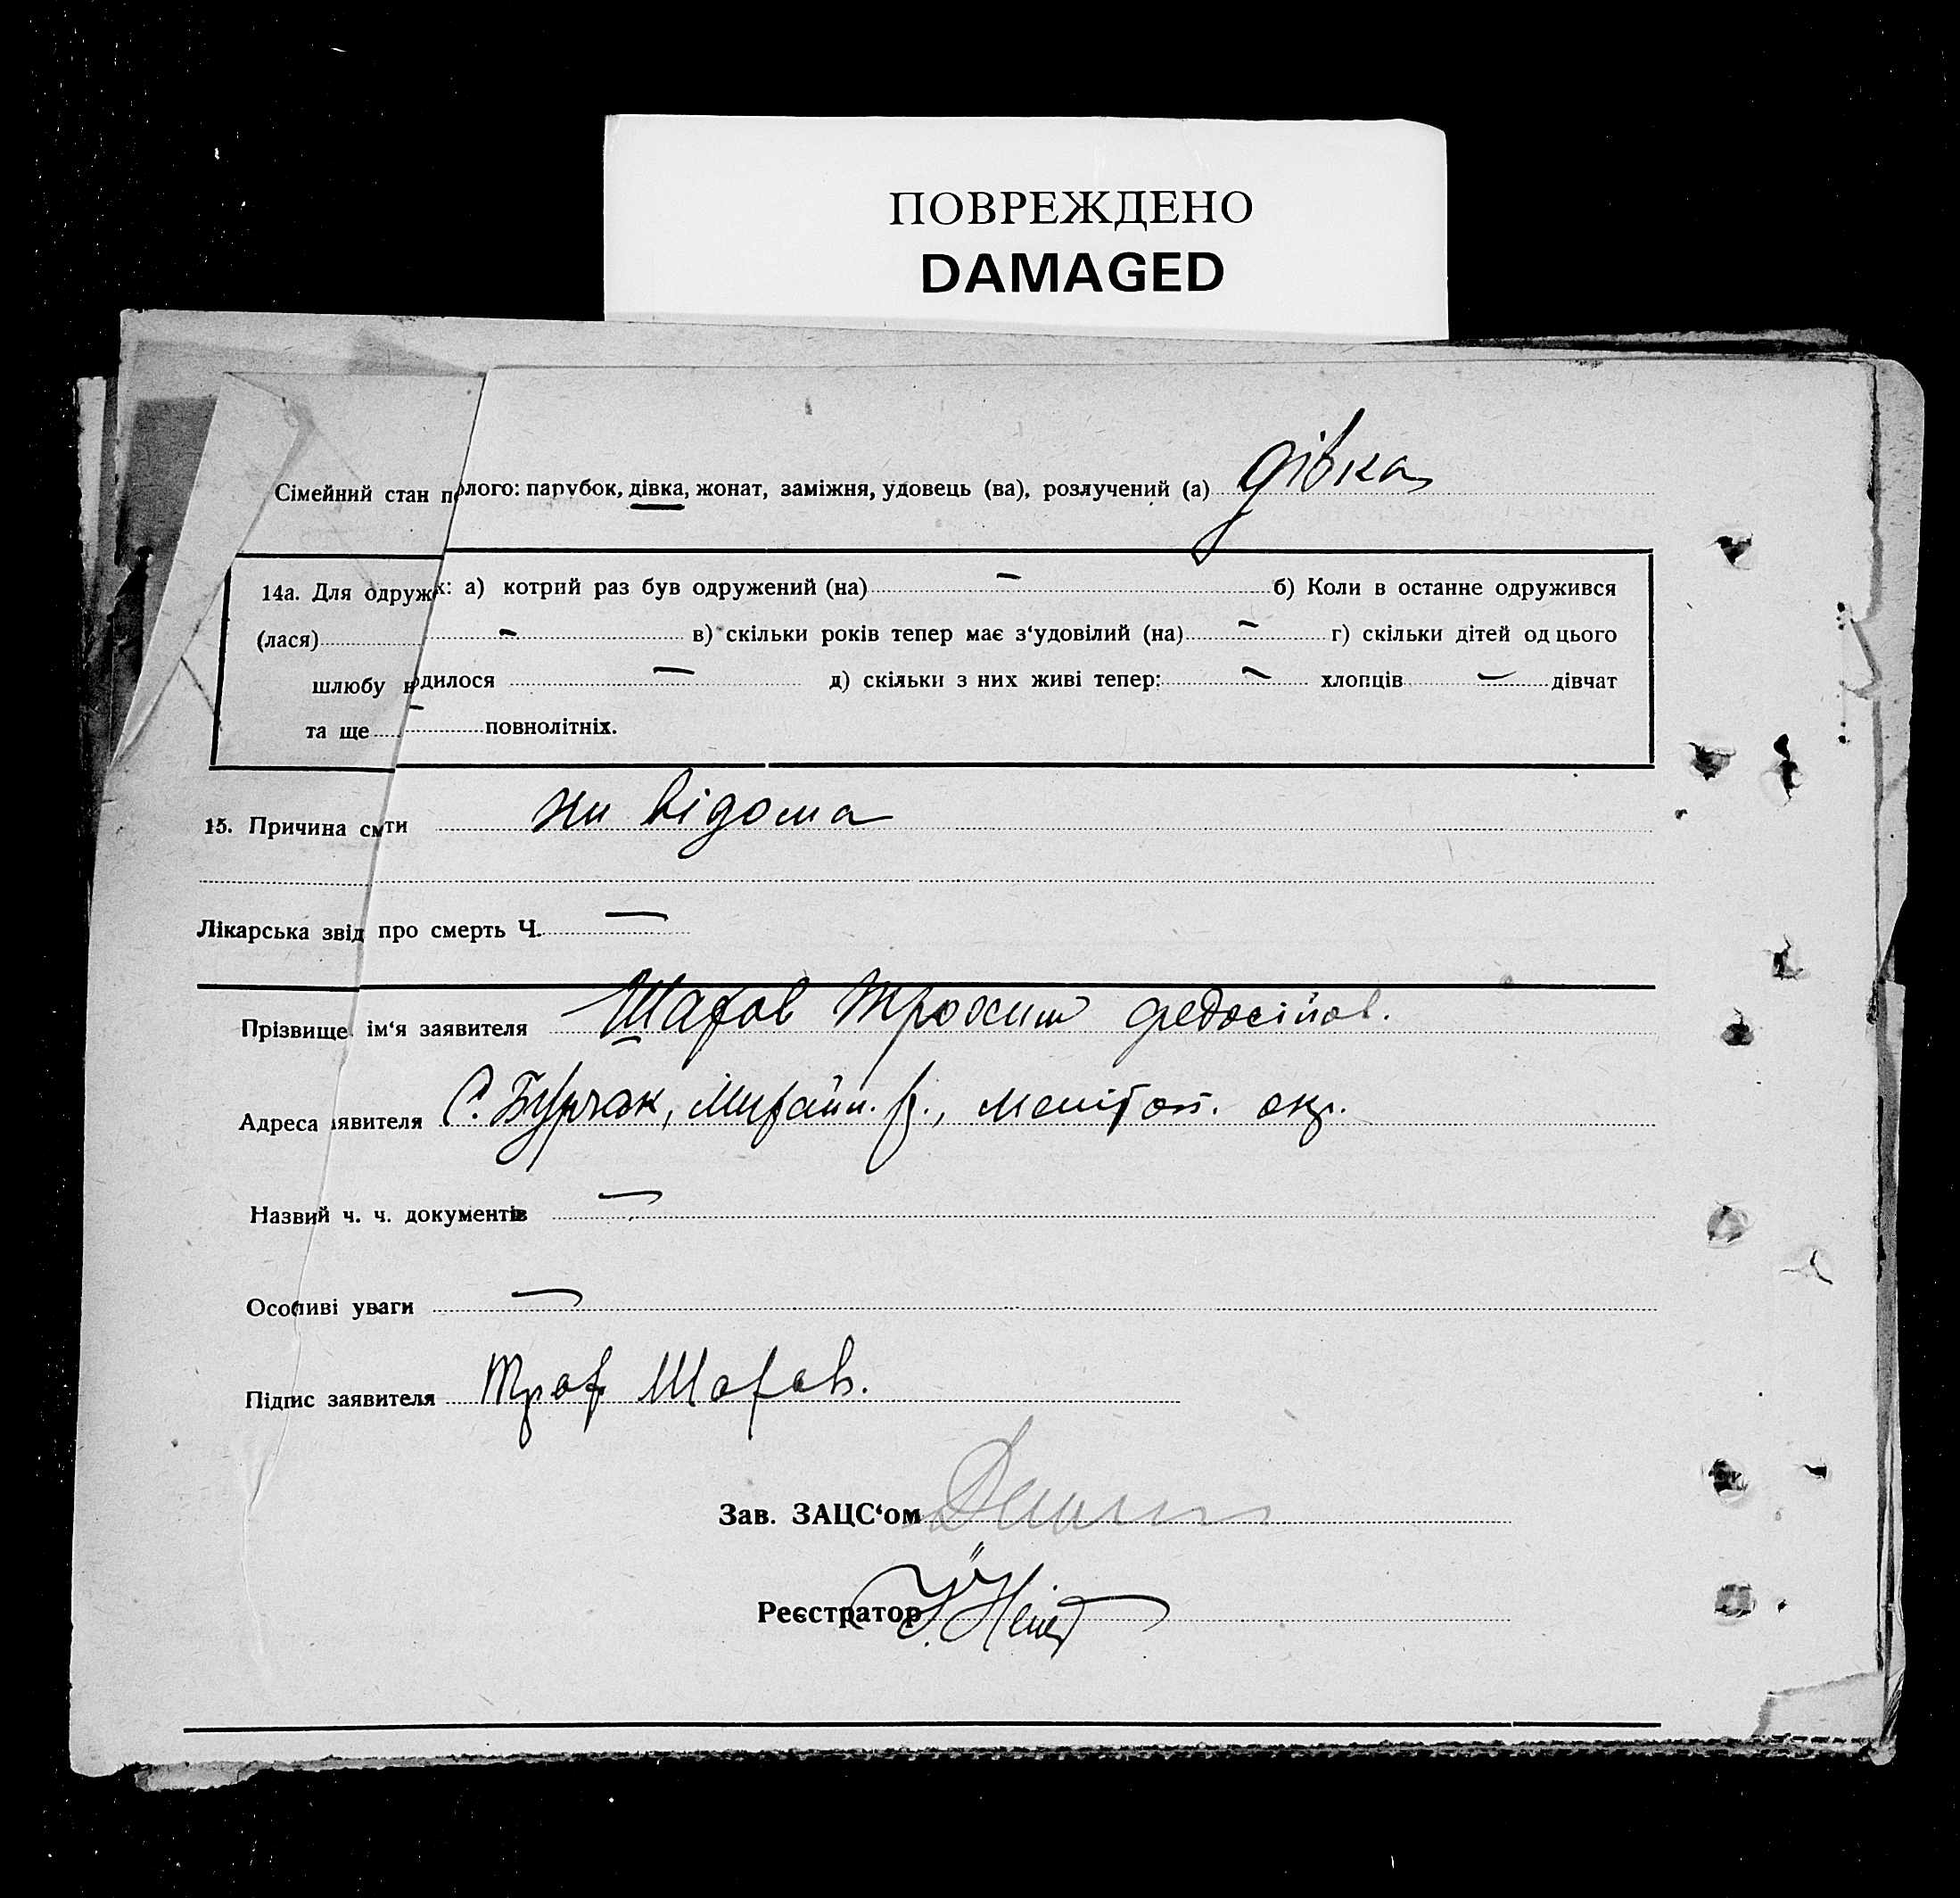 ПОВРЕЖДЕНО
DAMAGED
Сімейний стан полого: парубок, дівка, жонат, заміжня, удовець (ва), розлучений (а) дівка
14а. Для одруж: а) котрий раз був одружений (на) — б) Коли в останне одружився
(лася) — в) скільки років тепер має з‘удовілий (на) — г) скільки дітей од цього
шлюбу родилося — д) скільки з них живі тепер: — хлопців — дівчат
та ще — повнолітніх.
15. Причина смти не відома
Лікарська звід про смерть Ч. —
Прізвище ім‘я заявителя Шафов Трохим Федосійов.
Адреса явителя С. Бурчак, Михайл. р., мелітоп. окр.
Назвий ч. ч. документів —
Особиві уваги —
Підпис заявителя Троф Шафов.
Зав. ЗАЦС‘ом
Реєстратор